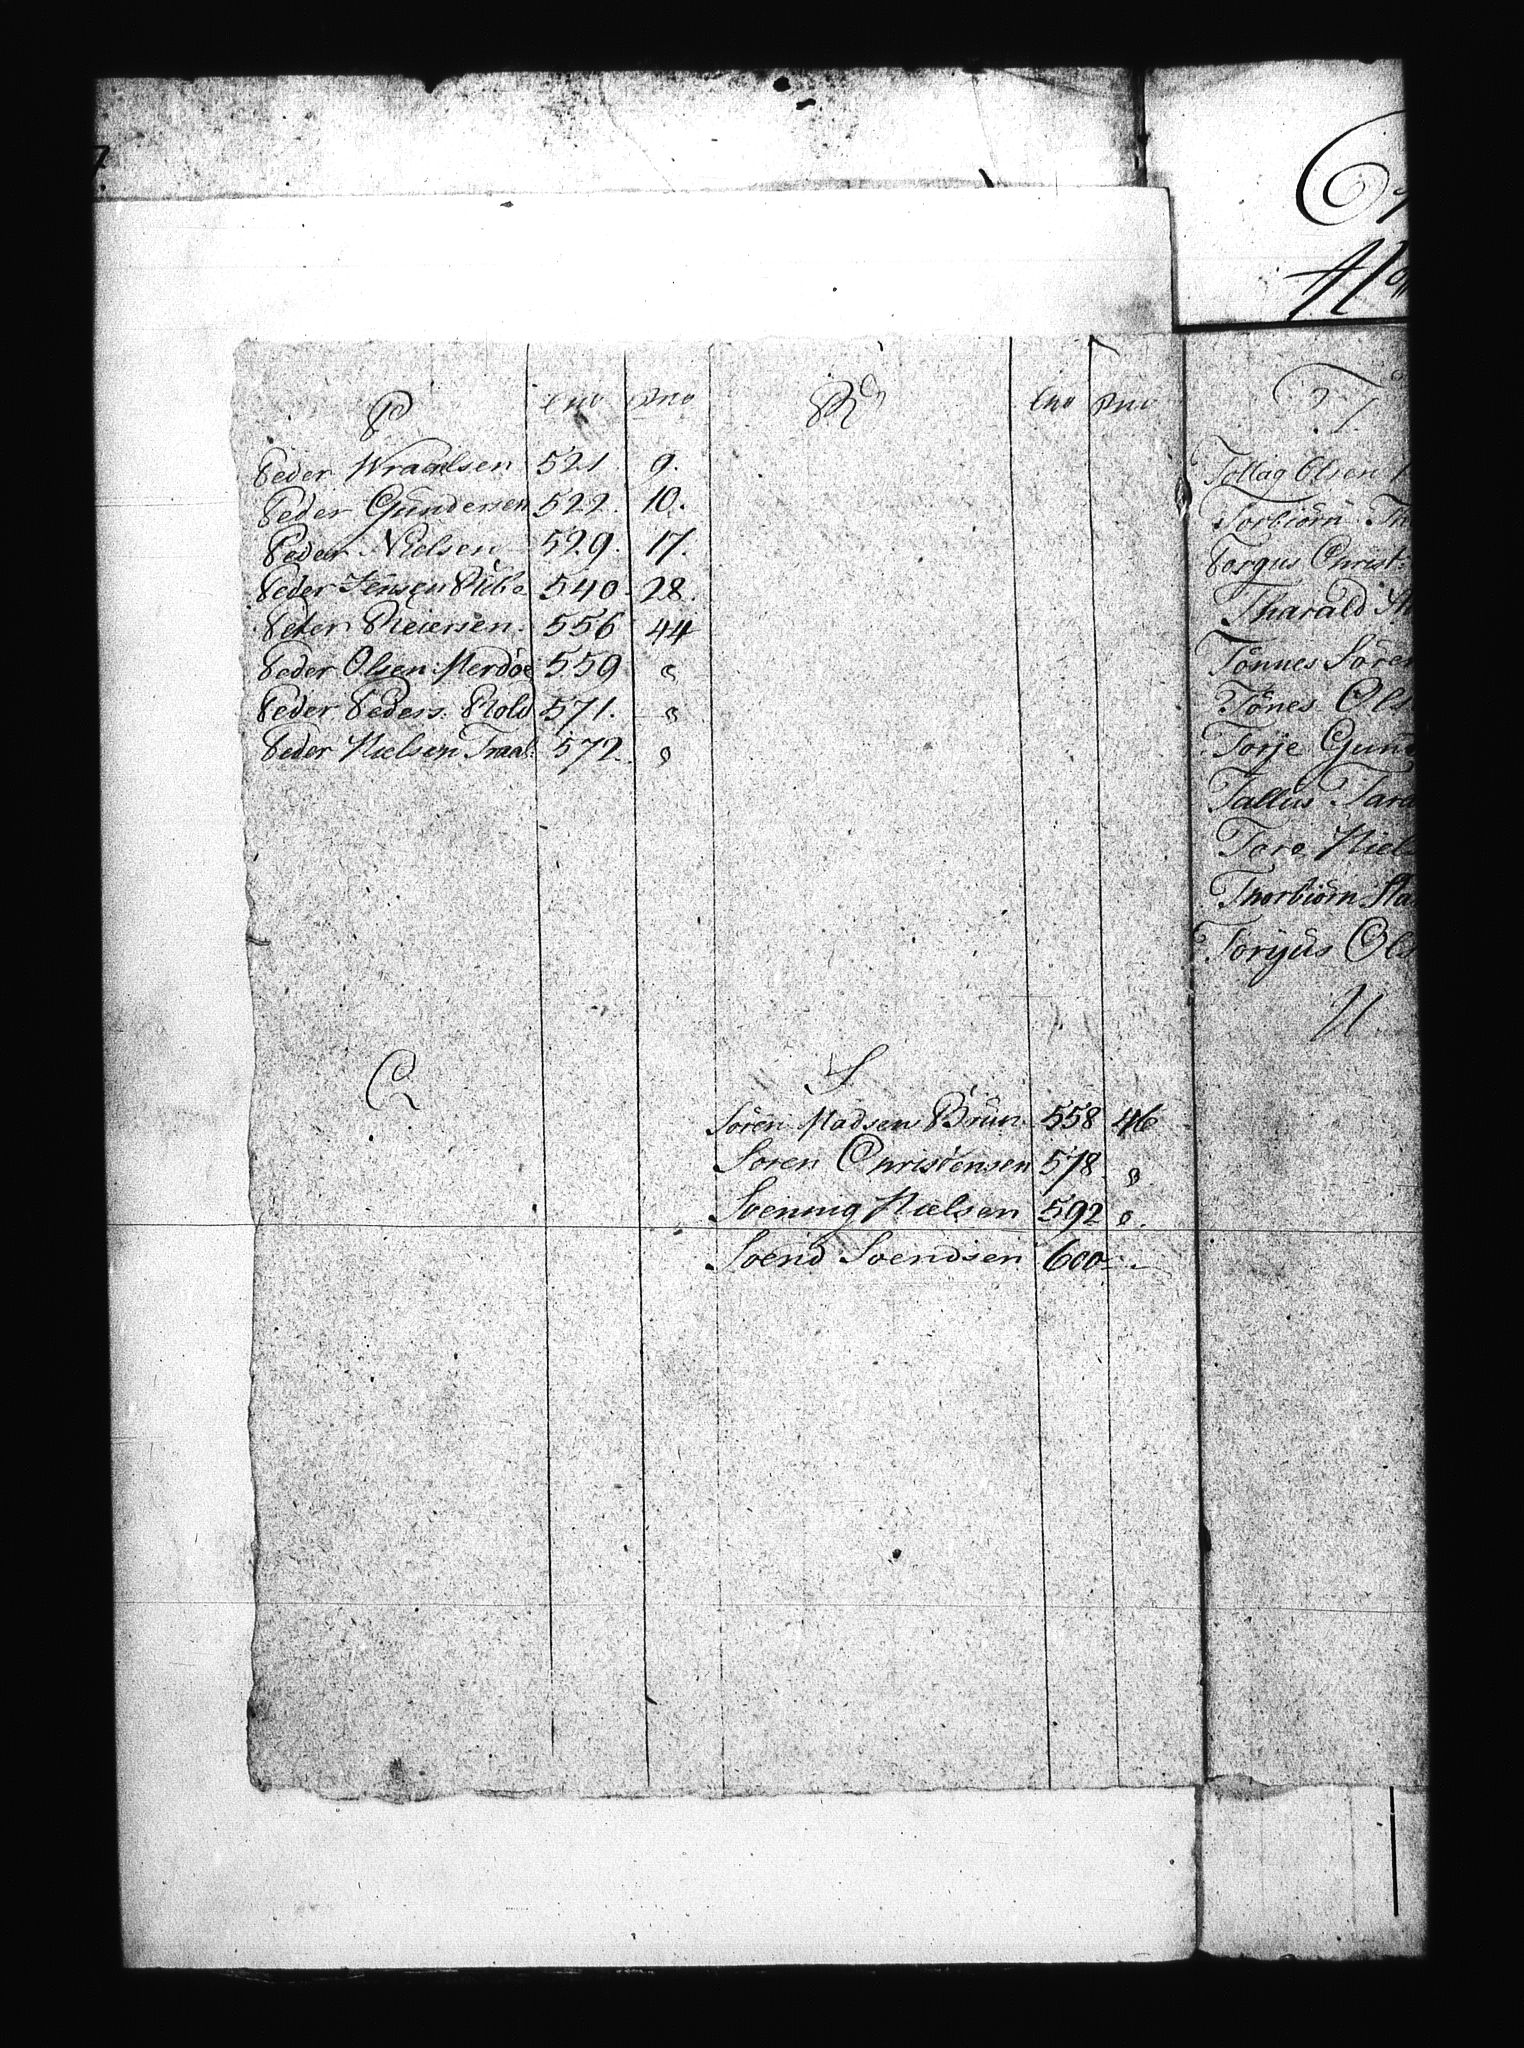 P Cno Pno
Peder Wraalsen 521. 9.
Peder Gundersen 522. 10.
Peder Nielsen 529. 17.
Peder Jensen Ribe 540. 28.
Peter Reiersen. 556 44
Peder Olsen Merdøe 559 "
Peder Peders. Rold 571. "
Peder Nielsen Traal: 572. "
Q
R Cno Pno
S
Sören Madsen Brün 558 46
Soren Christensen 578. "
Svennig Nielsen 592 "
Svend Svendsen 600 -
T.
Tollag Olsen
Torbiörn
Torgus Christ
Tharald
Tönnes Sören
Tönes Ols
Torje Gund
Tallus Tara
Tore Niels
Thorbiörn
Torjus Ols
U